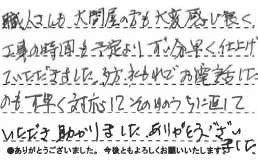 職人さんも、大問屋の方も大変感じ良く。
工事の時間も予定より早く仕上げ
ていただきました。お電話した
のも早く対応してそのうちに直して
いただき助かりました。ありがとうござい
ました
●ありがとうございました。今後ともよろしくお願いいたします